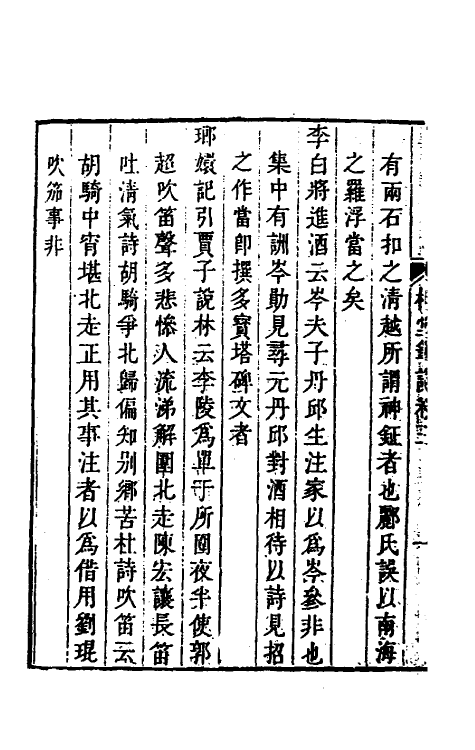 有兩石扣之清越所謂神鉦者也酈氏誤以南海
之羅浮當之矣
李白將進酒云岑夫子丹邱生注家以爲岑參非也
集中有詶岑勛見尋元丹邱對酒相待以詩見招
之作當卽撰多寶塔碑文者
瑯嬛記引賈子說林云李陵爲單于所圍夜半使郭
超吹笛聲多悲慘人流涕解圍北走陳宏讓長笛
吐清氣詩胡騎爭北歸偏知别鄉苦杜詩吹笛云
胡騎中宵堪北走正用其事注者以爲借用劉琨
吹笳事非